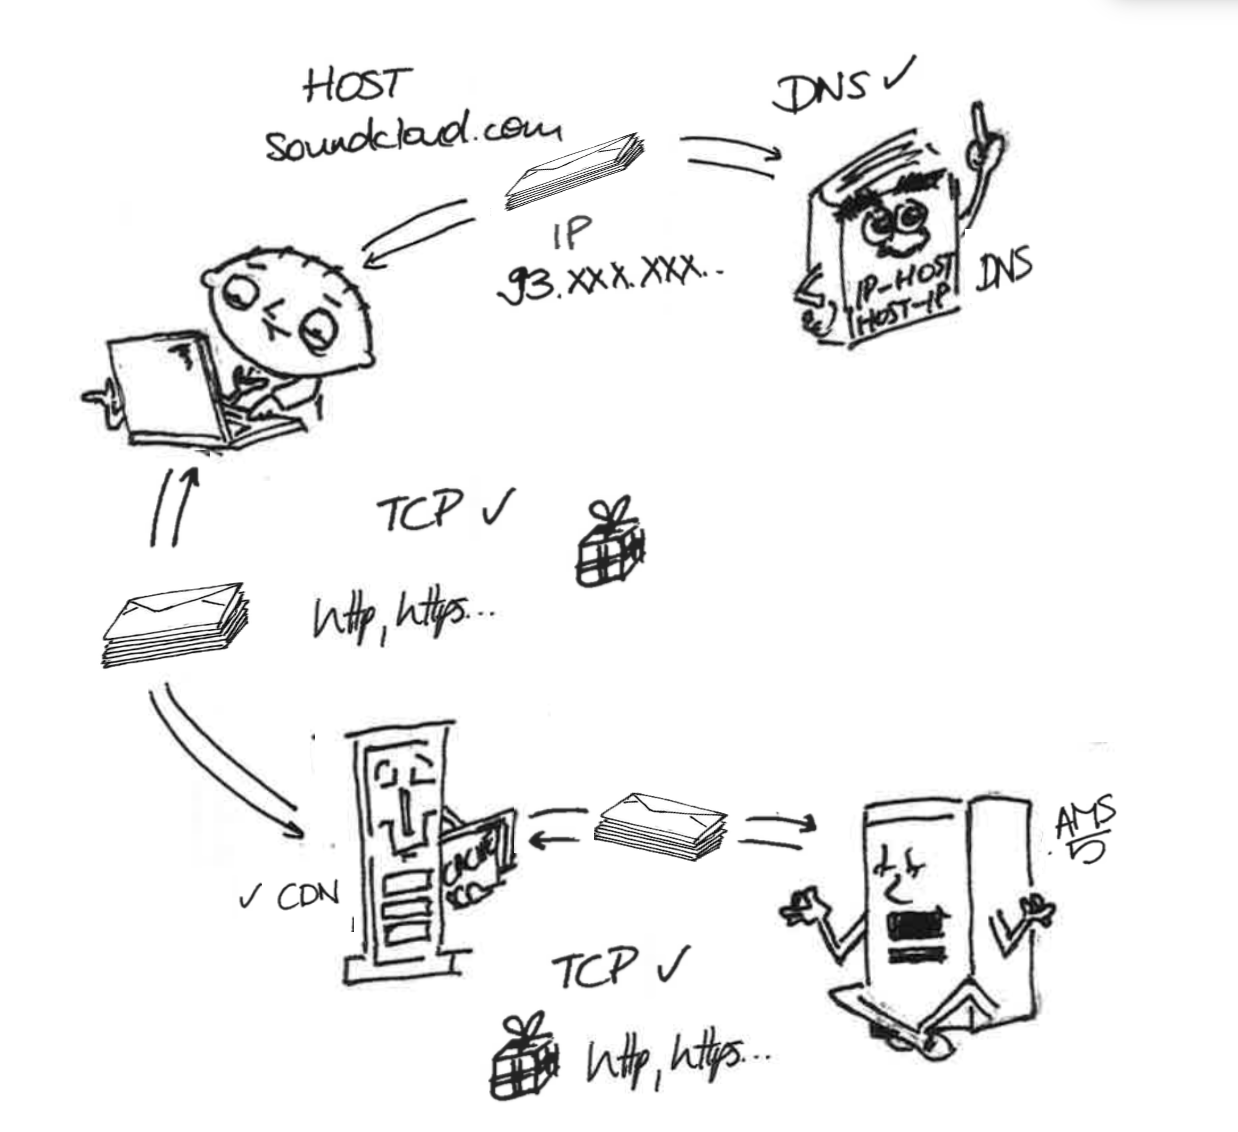 HOST
soundcloud.com
DNS ✓
IP
93.XXX.XXX..
IP-HOST
HOST-IP
DNS
TCP ✓
http, https...
CACHE
✓ CDN
AMS
5
TCP ✓
http, https...